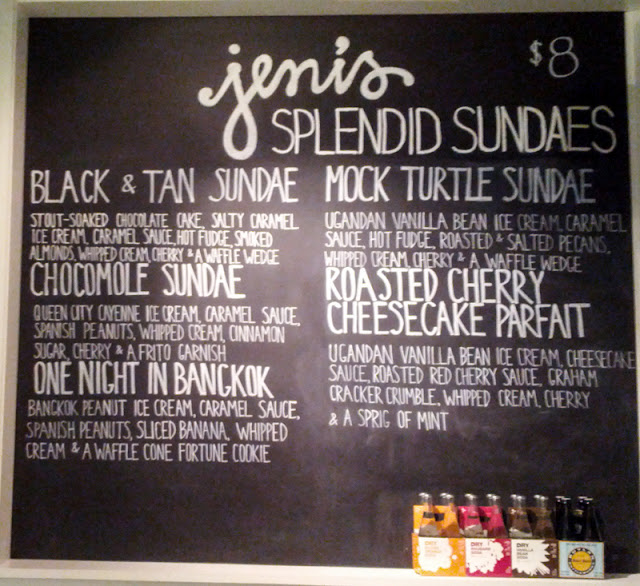 jeni's
$8
SPLENDID SUNDAES
BLACK & TAN SUNDAE
STOUT-SOAKED CHOCOLATE CAKE, SALTY CARAMEL
ICE CREAM, CARAMEL SAUCE, HOT FUDGE, SMOKED
ALMONDS, WHIPPED CREAM, CHERRY & A WAFFLE WEDGE
CHOCOMOLE SUNDAE
QUEEN CITY CAYENNE ICE CREAM, CARAMEL SAUCE,
SPANISH PEANUTS, WHIPPED CREAM, CINNAMON
SUGAR, CHERRY & A FRITO GARNISH
ONE NIGHT IN BANGKOK
BANGKOK PEANUT ICE CREAM, CARAMEL SAUCE,
SPANISH PEANUTS, SLICED BANANA, WHIPPED
CREAM & A WAFFLE CONE FORTUNE COOKIE
MOCK TURTLE SUNDAE
UGANDAN VANILLA BEAN ICE CREAM, CARAMEL
SAUCE, HOT FUDGE, ROASTED & SALTED PECANS,
WHIPPED CREAM, CHERRY & A WAFFLE WEDGE
ROASTED CHERRY
CHEESECAKE PARFAIT
UGANDAN VANILLA BEAN ICE CREAM, CHEESECAKE
SAUCE, ROASTED RED CHERRY SAUCE, GRAHAM
CRACKER CRUMBLE, WHIPPED CREAM, CHERRY
& A SPRIG OF MINT
DRY
DRY
RHUBARB
SODA
DRY
VANILLA
BEAN
SODA